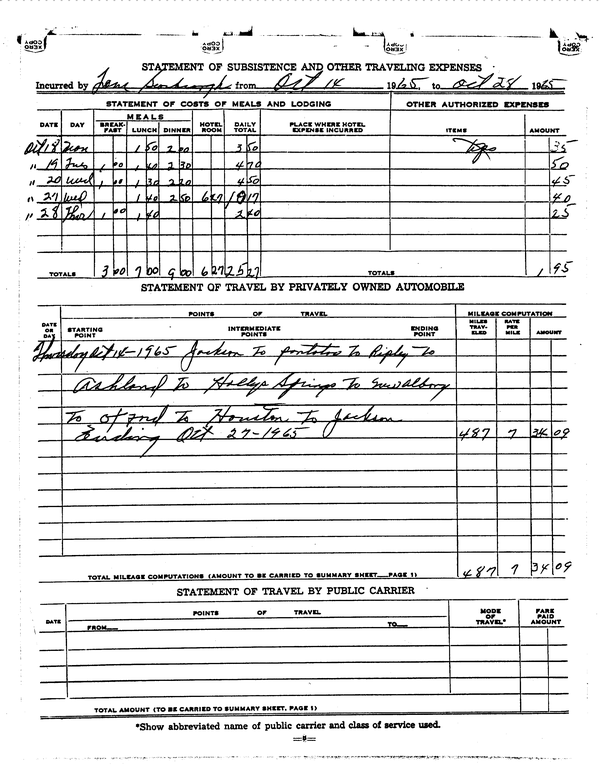 XERO COPY XERO COPY XERO COPY XERO COPY
STATEMENT OF SUBSISTENCE AND OTHER TRAVELING EXPENSES
Incurred by from Oct 14 1965, to Oct 28 1965
STATEMENT OF COSTS OF MEALS AND LODGING OTHER AUTHORIZED EXPENSES
MEALS
DATE DAY BREAK-FAST LUNCH DINNER HOTEL ROOM DAILY TOTAL PLACE WHERE HOTEL EXPENSE INCURRED ITEMS AMOUNT
Oct 18 Mon 1 50 2 00 3 50 Tips 35
" 19 Tues 1 00 1 40 2 30 4 70 50
" 20 Wed 1 00 1 30 2 20 4 50 45
" 27 Wed 1 40 2 50 6 27 10 17 40
" 28 Thur 1 00 1 40 2 40 25
TOTALS 3 00 7 00 9 00 6 27 25 27 TOTALS 1 95
STATEMENT OF TRAVEL BY PRIVATELY OWNED AUTOMOBILE
POINTS OF TRAVEL MILEAGE COMPUTATION
DATE OR DAY STARTING POINT INTERMEDIATE POINTS ENDING POINT MILES TRAV-ELED RATE PER MILE AMOUNT
Thursday Oct 14-1965 Jackson To pontotoc To Ripley to
Ashland to Hollys Springs To New Albany
To to Houston to Jackson
Ending Oct 27-1965 487 7 34 09
TOTAL MILEAGE COMPUTATIONS (AMOUNT TO BE CARRIED TO SUMMARY SHEET PAGE 1) 487 7 34 09
STATEMENT OF TRAVEL BY PUBLIC CARRIER
DATE POINTS OF TRAVEL MODE OF TRAVEL* FARE PAID AMOUNT
FROM TO
TOTAL AMOUNT (TO BE CARRIED TO SUMMARY SHEET, PAGE 1)
*Show abbreviated name of public carrier and class of service used.